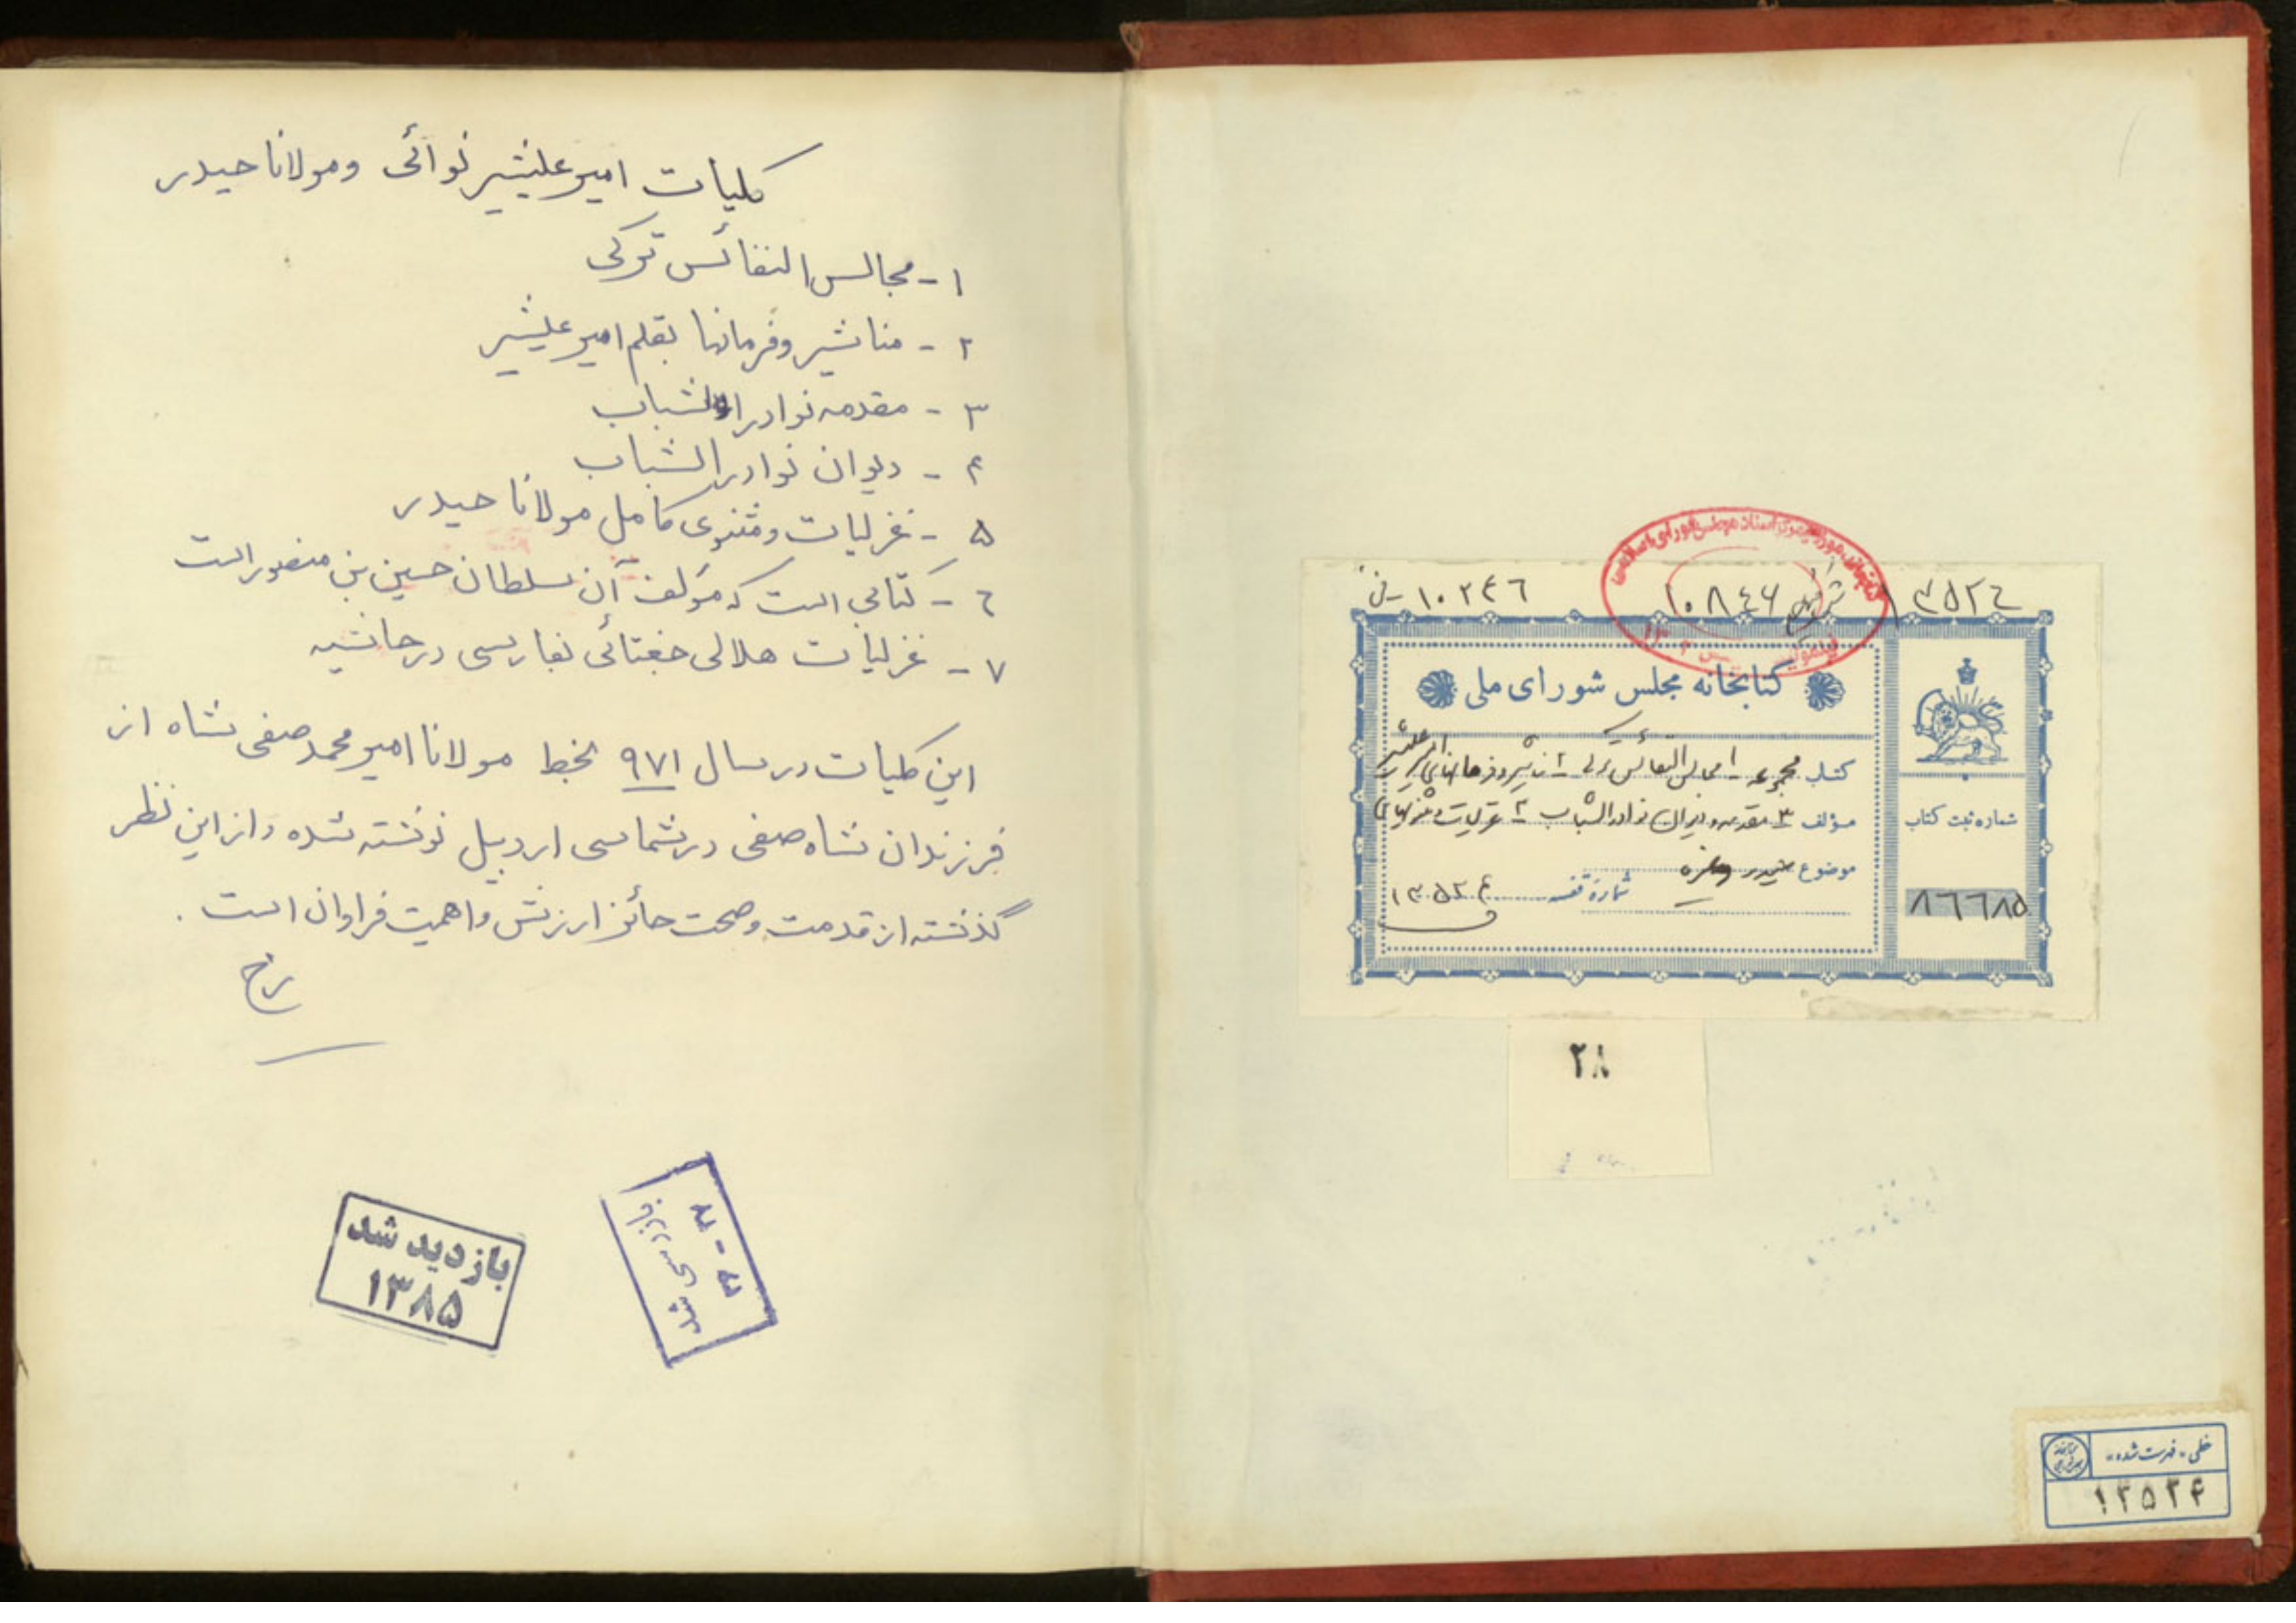 کلیات امیر علیشیر نوائی ومولانا حیدر
۱- مجالس النفائس ترکی
۲- مناشیر وفرمانها بقلم امیر علیشیر
۳- مقدمه نوادر الشباب
۴- دیوان نوادر الشباب
۵- غزلیات ومثنوی کامل مولانا حیدر
۶- کتابی است که مؤلف آن سلطان حسین بن منصور است
۷- غزلیات هلالی جغتائی بفارسی در حاشیه
این کلیات در سال ۹۷۱ بخط مولانا امیر محمد صفی شاه از
فرزندان شاه صفی در شماسی اردبیل نوشته شده واز این نظر
گذشته از قدمت وصحت حائز ارزش واهمیت فراوان است .
بازدید شد
۱۳۸۵
بازرسی شد
۱۰۲۴۶
۱۰۸۴۶
۱۳۵۲۴
کتابخانه مجلس شورای ملی
کتاب مجموعه ۱ مجالس النفائس ترکی ۲
مؤلف ۳ مقدمه و دیوان نوادر الشباب ۴ غزلیات و
موضوع حیدر
شماره قفسه ۱۳۵۲۴
شماره ثبت کتاب
۸۶۶۸۵
۲۸
خطی - فهرست شده -
۱۳۵۲۴